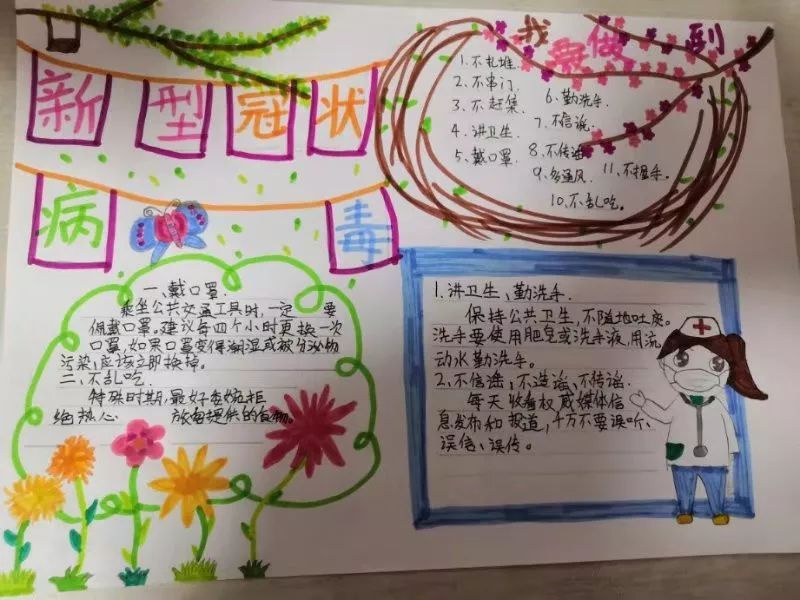 新型冠状
病毒
我要做到
1.不扎堆.
2.不串门.
3.不赶集
4.讲卫生.
5.戴口罩.
6.勤洗手.
7.不信谣.
8.不传谣
9.多通风.
10.不乱吃。
11.不握手.
一.戴口罩.
乘坐公共交通工具时,一定要
佩戴口罩。建议每四个小时更换一次
口罩,如果口罩变得潮湿或被分泌物
污染,应该立即换掉。
二.不乱吃.
特殊时期,最好委婉拒
绝热心 提供的食物。
1.讲卫生、勤洗手.
保持公共卫生,不随地吐痰。
洗手要使用肥皂或洗手液,用流
动水勤洗手。
2.不信谣,不造谣,不传谣.
每天收看权威媒体信
息发布和报道,千万不要误听、
误信、误传。